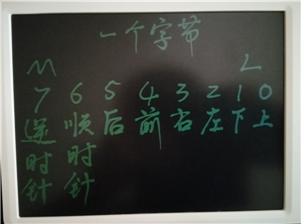 一个字节
M L
7 6 5 4 3 2 1 0
逆 顺 后 前 右 左 下 上
时 时
针 针